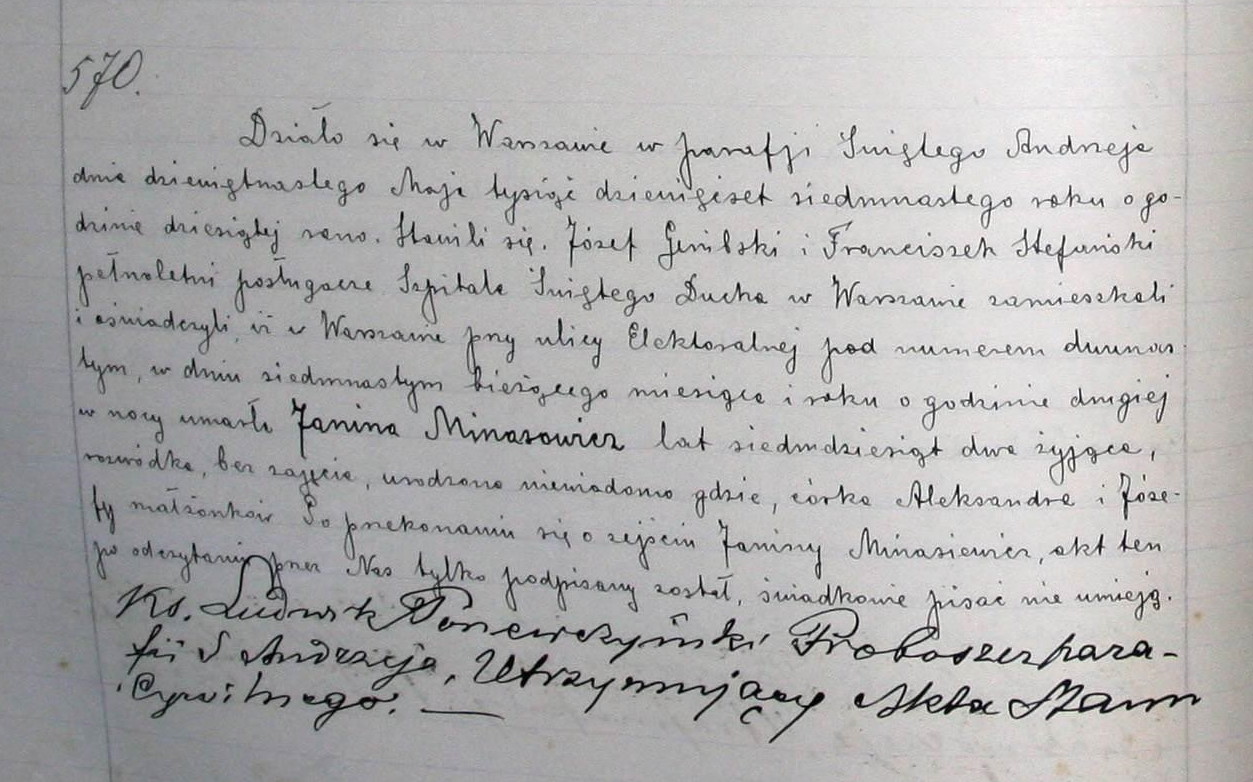 570.
Działo się w Warszawie w parafji Świętego Andrzeja
dnia dziewiętnastego Maja tysiąc dziewięćset siedmnastego roku o go-
dzinie dziesiątej rano. Stawili się. Józef i Franciszek Stefański
pełnoletni posługacze Szpitala Świętego Ducha w Warszawie zamieszkali
i oświadczyli, iż w Warszawie przy ulicy Elektoralnej pod numerem dwunas
tym, w dniu siedmnastym bieżącego miesiąca i roku o godzinie drugiej
w nocy umarła Janina Minasowicz lat siedmdziesiąt dwa żyjąca,
rozwódka, bez zajęcia, urodzona niewiadomo gdzie, córka Aleksandra i Józe-
fy małżonków Po przekonaniu się o zejściu Janiny Minasiewicz, akt ten
po odczytaniu przez Nas tylko podpisany został, świadkowie pisać nie umieją.
Ks. Ludwik Proboszcz para-
fii Ś Andrzeja, Utrzymujący Akta Stanu
Cywilnego.